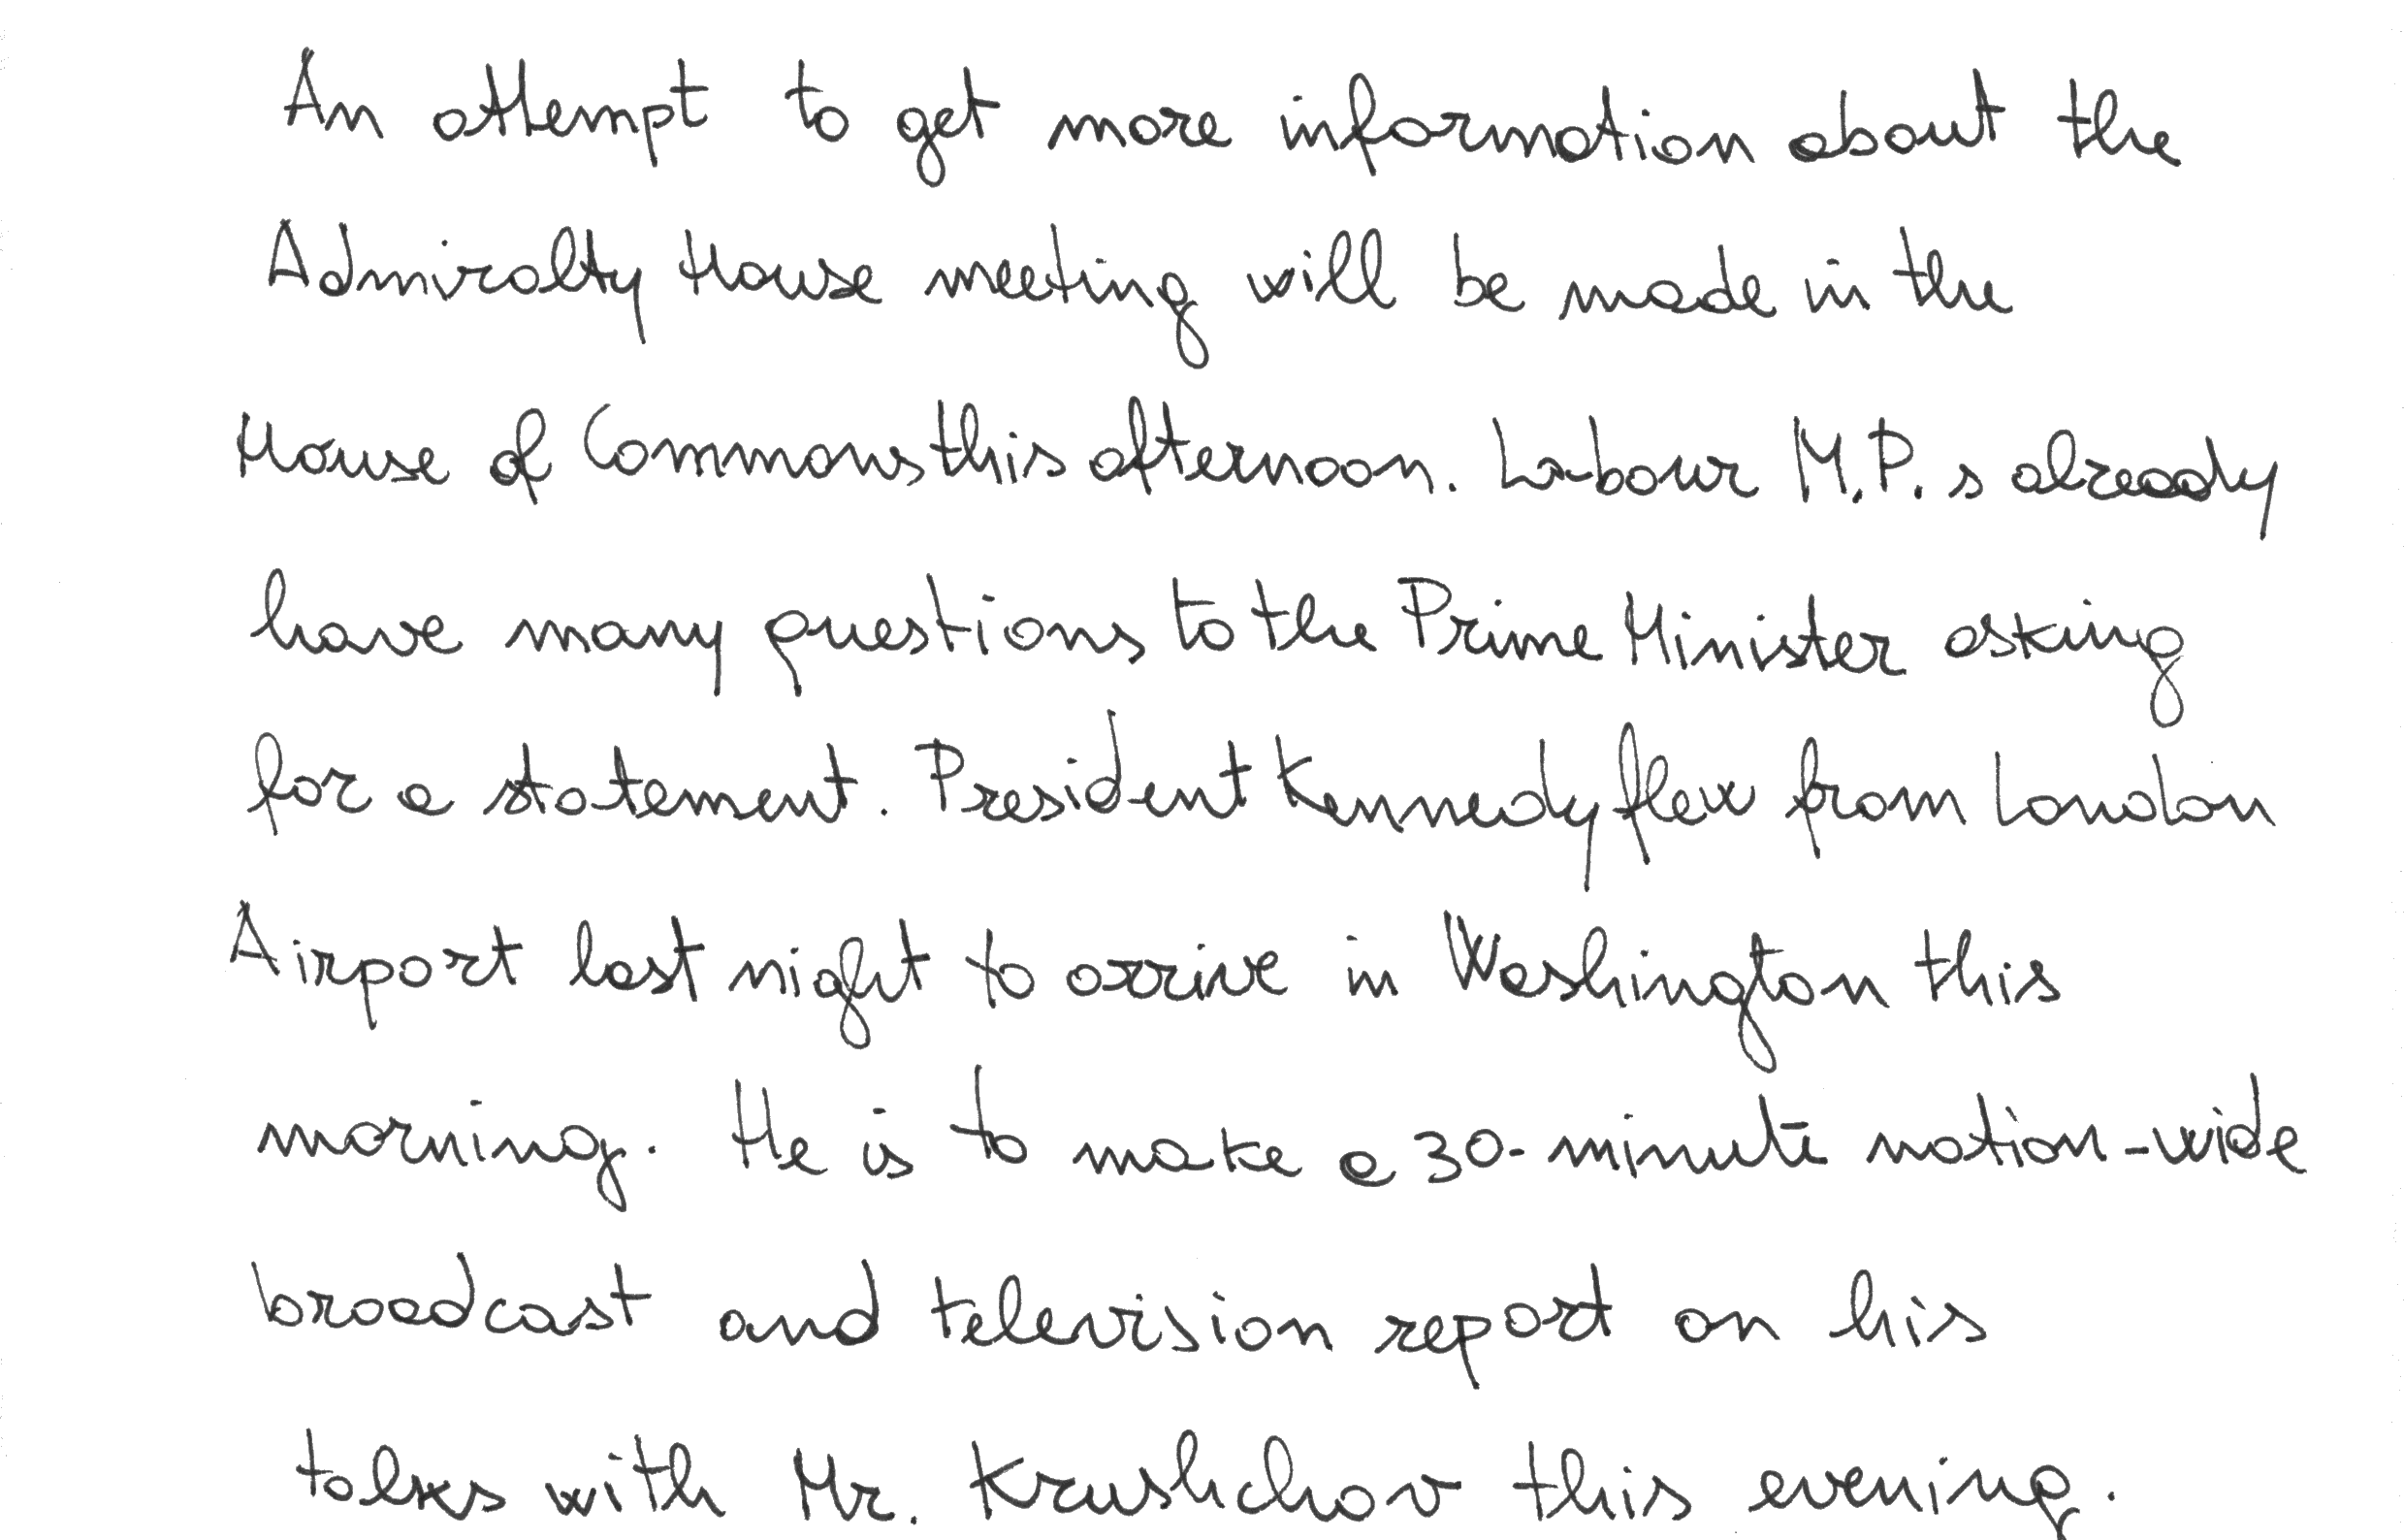 An attempt to get more information about the
Admiralty House meeting will be made in the
House of Commons this afternoon. Labour M.P.s already
have many questions to the Prime Minister asking
for a statement. President Kennedy flew from London
Airport last night to arrive in Washington this
morning. He is to make a 30-minute nation-wide
broadcast and television report on his
talks with Mr. Krushchov this evening.